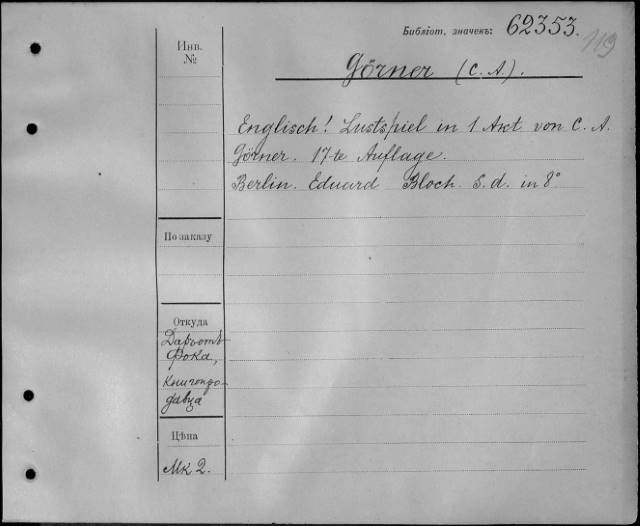 Библіот. значекъ: 62353.
119
Инв. №
Görner (C. A.).
Englisch! Lustspiel in 1 Akt von C. A.
Görner. 17-te Auflage.
Berlin. Eduard Bloch. S. d. in 8°
По заказу
Откуда
Фока,
книгопро-
давца
Цѣна
Мк 2.